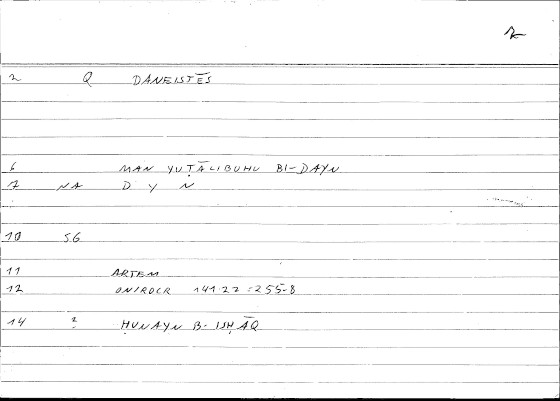 2 Q DANEISTĒS
6 MAN YUṬĀLIBUHU BI-DAYN
7 NA D Y N
10 SG
11 ARTEM
12 ONIROCR 141.22 : 255.8
14 ? ḤUNAYN B- ISḤĀQ